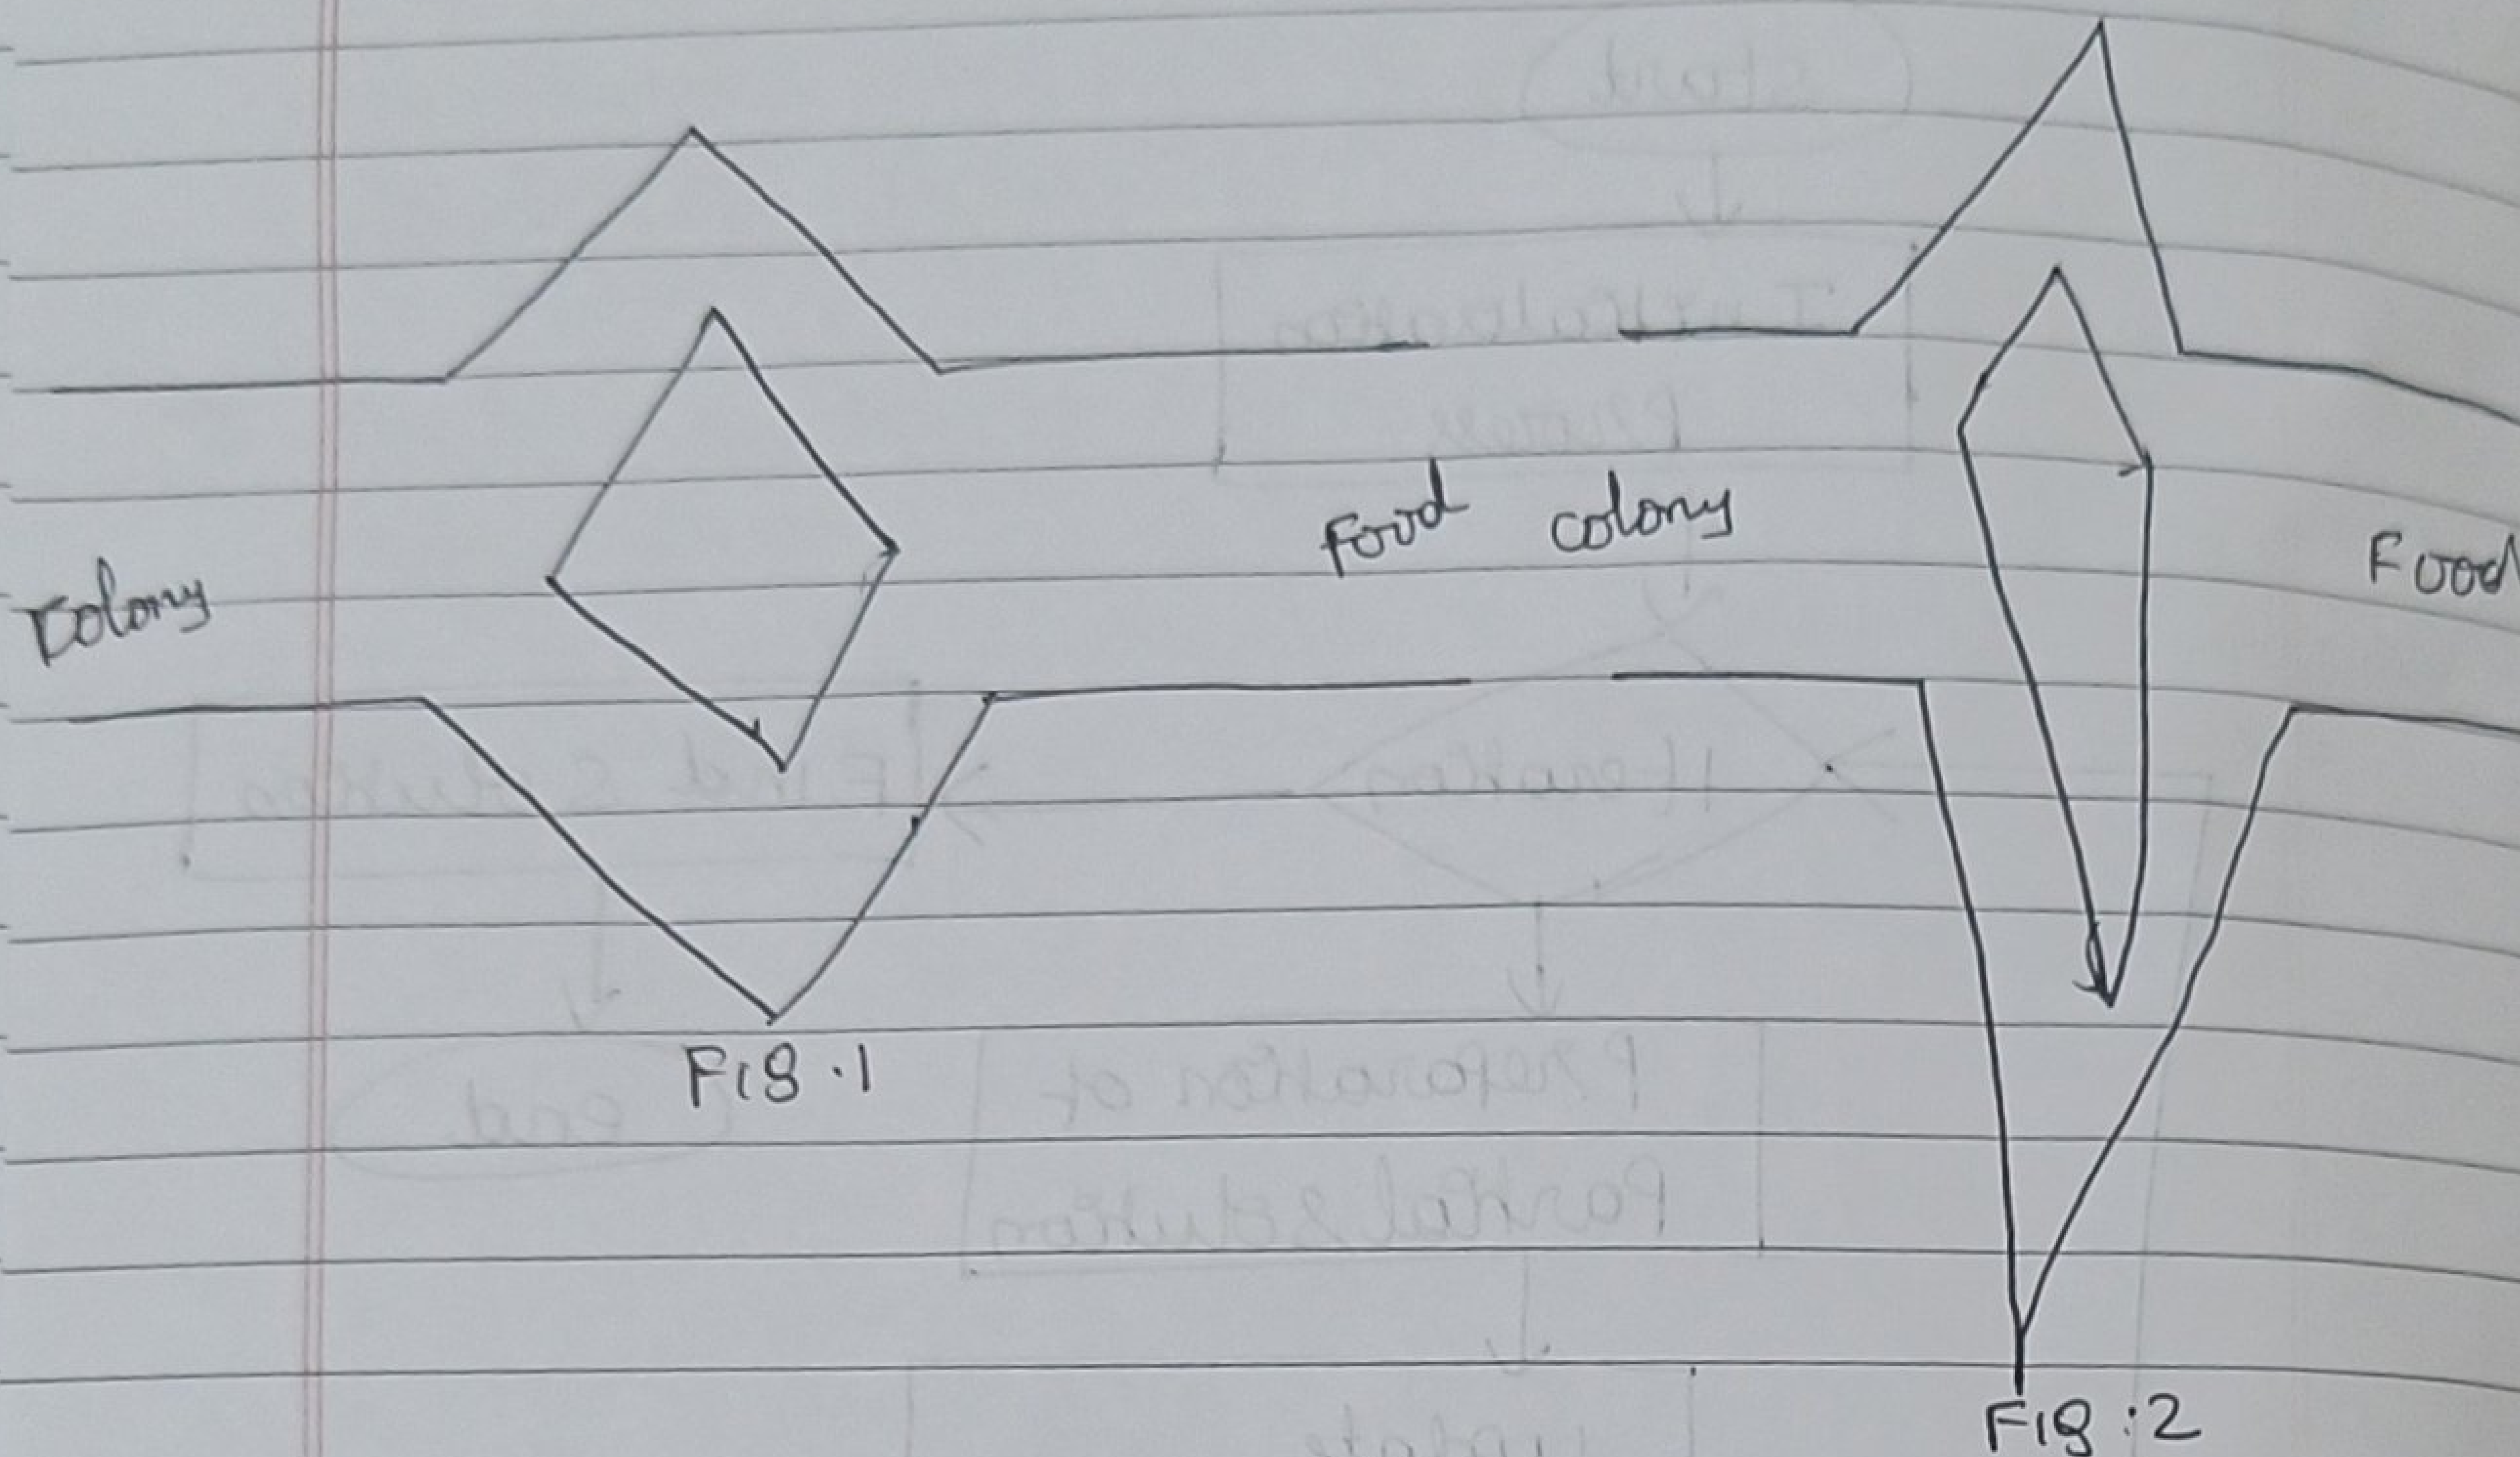 Colony
Food
colony
Food
Fig.1
Fig:2